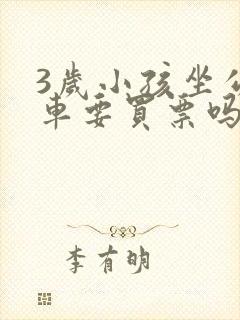 3歲小孩坐公
車要買票吗
李有明